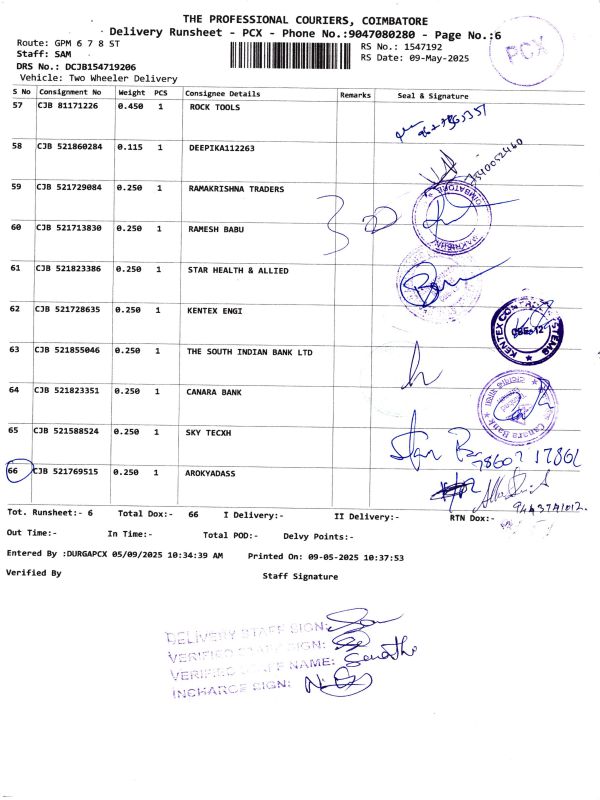 THE PROFESSIONAL COURIERS, COIMBATORE
Delivery Runsheet - PCX - Phone No.:9047080280 - Page No.:6
Route: GPM 6 7 8 ST
Staff: SAM
DRS No.: DCJB154719206
Vehicle: Two Wheeler Delivery
RS No.: 1547192
RS Date: 09-May-2025
PCX
S No Consignment No Weight PCS Consignee Details Remarks Seal & Signature
57 CJB 81171226 0.450 1 ROCK TOOLS
58 CJB 521860284 0.115 1 DEEPIKA112263
59 CJB 521729084 0.250 1 RAMAKRISHNA TRADERS
60 CJB 521713830 0.250 1 RAMESH BABU
61 CJB 521823386 0.250 1 STAR HEALTH & ALLIED
62 CJB 521728635 0.250 1 KENTEX ENGI
63 CJB 521855046 0.250 1 THE SOUTH INDIAN BANK LTD
64 CJB 521823351 0.250 1 CANARA BANK
Canara Bank
65 CJB 521588524 0.250 1 SKY TECXH
66 CJB 521769515 0.250 1 AROKYADASS
Tot. Runsheet:- 6 Total Dox:- 66 I Delivery:- II Delivery:- RTN Dox:-
Out Time:- In Time:- Total POD:- Delvy Points:-
Entered By :DURGAPCX 05/09/2025 10:34:39 AM Printed On: 09-05-2025 10:37:53
Verified By Staff Signature
DELIVERY STAFF SIGN:
VERIFIED STAFF SIGN:
VERIFIED STAFF NAME:
INCHARGE SIGN: